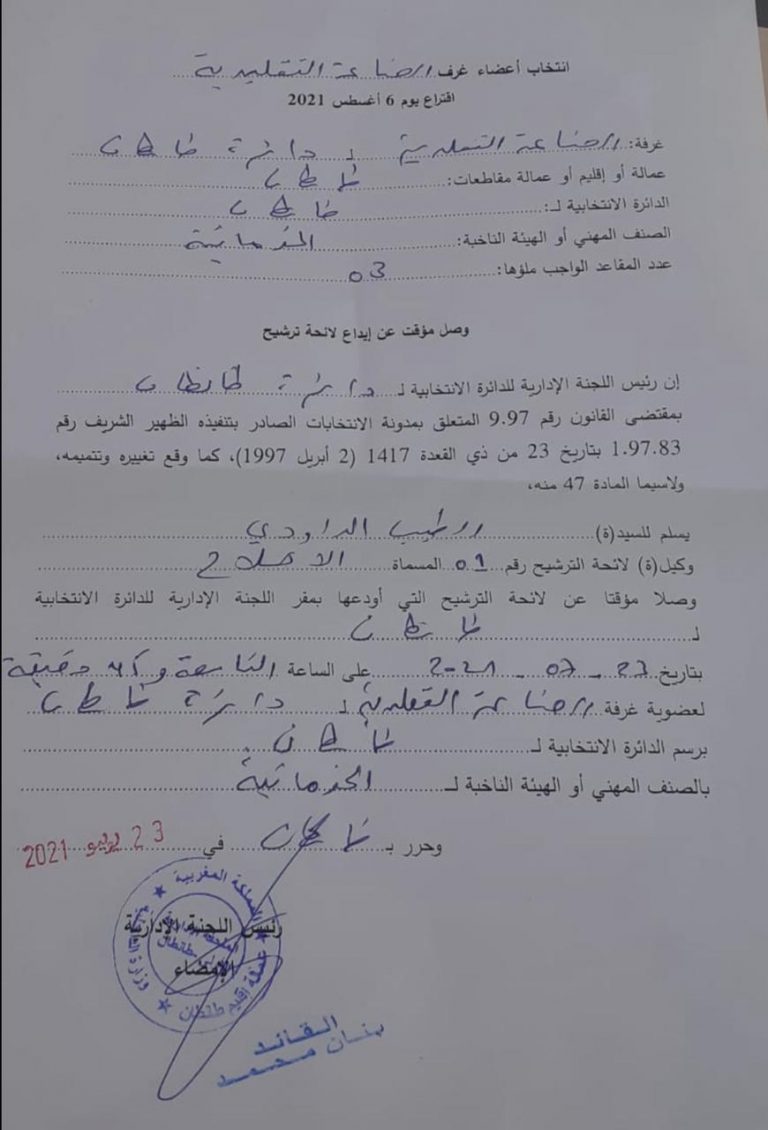 انتخاب أعضاء غرف الصناعة التقليدية
اقتراع يوم 6 أغسطس 2021
غرفة: الصناعة التقليدية لـ دائرة طانطان
عمالة أو إقليم أو عمالة مقاطعات: طانطان
الدائرة الانتخابية لـ: طانطان
الصنف المهني أو الهيئة الناخبة: الخدماتية
عدد المقاعد الواجب ملؤها: 03
وصل مؤقت عن إيداع لائحة ترشيح
إن رئيس اللجنة الإدارية للدائرة الانتخابية لـ دائرة طانطان
بمقتضى القانون رقم 9.97 المتعلق بمدونة الانتخابات الصادر بتنفيذه الظهير الشريف رقم
1.97.83 بتاريخ 23 من ذي القعدة 1417 (2 أبريل 1997)، كما وقع تغييره وتتميمه،
ولاسيما المادة 47 منه،
يسلم للسيد(ة) الداودي
وكيل(ة) لائحة الترشيح رقم 01 المسماة
وصلا مؤقتا عن لائحة الترشيح التي أودعها بمقر اللجنة الإدارية للدائرة الانتخابية
لـ طانطان
بتاريخ 23 - 07 - 2021 على الساعة التاسعة و دقيقة
لعضوية غرفة الصناعة التقليدية لـ دائرة طانطان
برسم الدائرة الانتخابية لـ طانطان
بالصنف المهني أو الهيئة الناخبة لـ الخدماتية
وحرر بـ طانطان في 23 يوليو 2021
المملكة المغربية
وزارة الداخلية
عمالة إقليم طانطان
رئيس اللجنة الإدارية
الإمضاء
القائد
محمد